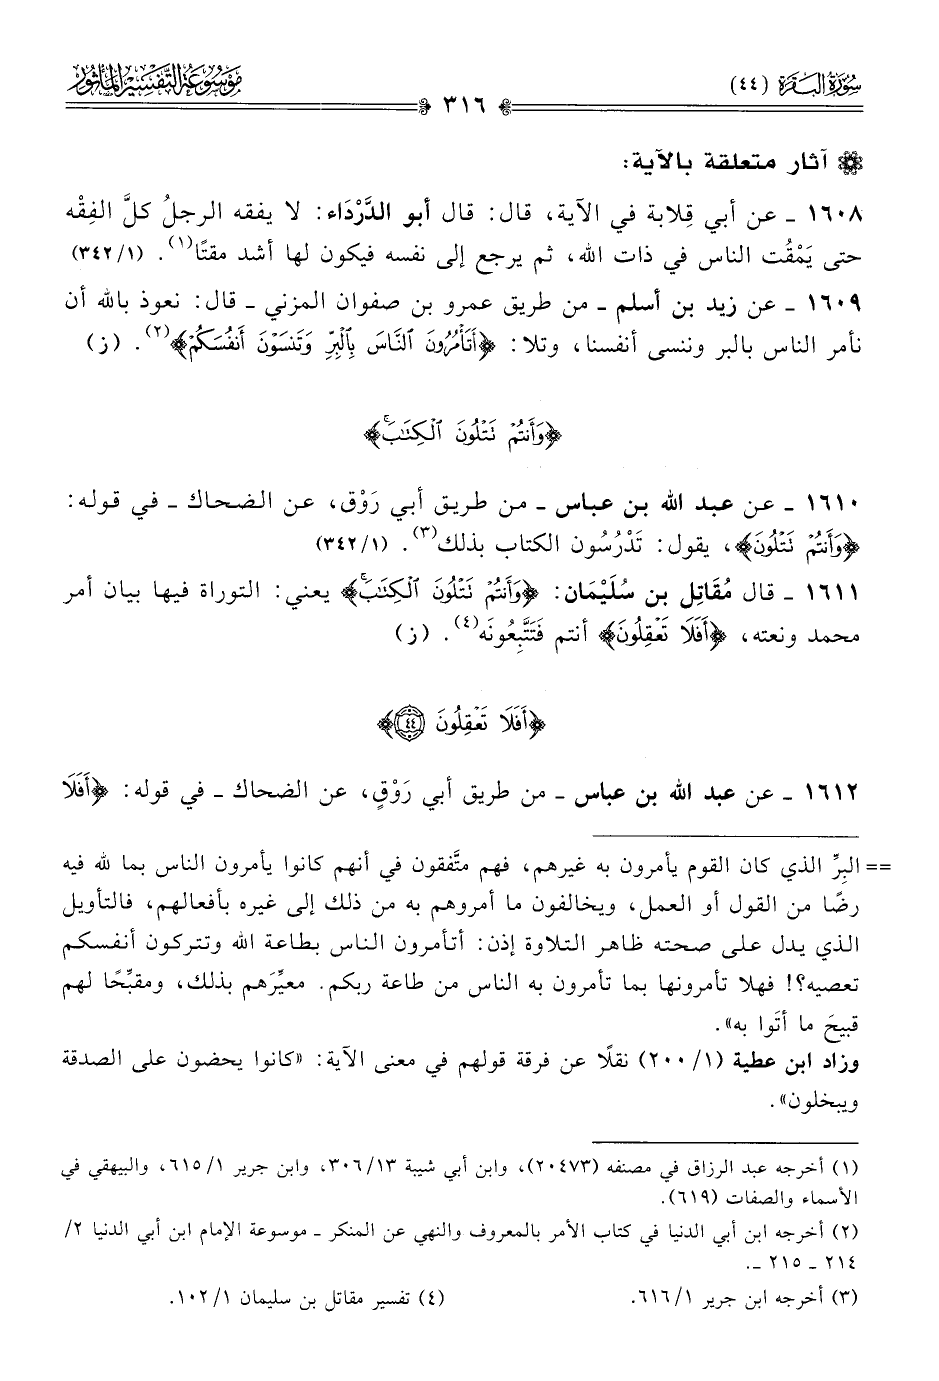 سُورَةُ البَقَرَةِ (٤٤)
٣١٦
مَوْسُوعَة التَّفْسِيرِ المَأْثُور
آثار متعلقة بالآية:
١٦٠٨ ـ عن أبي قِلابة في الآية، قال: قال أبو الدَّرْدَاء: لا يفقه الرجلُ كلَّ الفِقْه
حتى يَمْقُت الناس في ذات الله، ثم يرجع إلى نفسه فيكون لها أشد مقتًا(١). (٣٤٢/١)
١٦٠٩ ـ عن زيد بن أسلم ـ من طريق عمرو بن صفوان المزني ـ قال: نعوذ بالله أن
نأمر الناس بالبر وننسى أنفسنا، وتلا: ﴿أَتَأْمُرُونَ ٱلنَّاسَ بِٱلْبِرِّ وَتَنسَوْنَ أَنفُسَكُمْ﴾(٢). (ز)
﴿وَأَنتُمْ تَتْلُونَ ٱلْكِتَٰبَۚ﴾
١٦١٠ ـ عن عبد الله بن عباس ـ من طريق أبي رَوْق، عن الضحاك ـ في قوله:
﴿وَأَنتُمْ تَتْلُونَ﴾، يقول: تَدْرُسُون الكتاب بذلك(٣). (٣٤٢/١)
١٦١١ ـ قال مُقَاتِل بن سُلَيْمَان: ﴿وَأَنتُمْ تَتْلُونَ ٱلْكِتَٰبَۚ﴾ يعني: التوراة فيها بيان أمر
محمد ونعته، ﴿أَفَلَا تَعْقِلُونَ﴾ أنتم فَتَتَّبِعُونَه(٤). (ز)
﴿أَفَلَا تَعْقِلُونَ ٤٤﴾
١٦١٢ ـ عن عبد الله بن عباس ـ من طريق أبي رَوْقٍ، عن الضحاك ـ في قوله: ﴿أَفَلَا
== البِرِّ الذي كان القوم يأمرون به غيرهم، فهم متَّفقون في أنهم كانوا يأمرون الناس بما لله فيه
رضًا من القول أو العمل، ويخالفون ما أمروهم به من ذلك إلى غيره بأفعالهم، فالتأويل
الذي يدل على صحته ظاهر التلاوة إذن: أتأمرون الناس بطاعة الله وتتركون أنفسكم
تعصيه؟! فهلا تأمرونها بما تأمرون به الناس من طاعة ربكم. معيِّرَهم بذلك، ومقبِّحًا لهم
قبيحَ ما أتَوا به».
وزاد ابن عطية (١/ ٢٠٠) نقلًا عن فرقة قولهم في معنى الآية: «كانوا يحضون على الصدقة
ويبخلون».
(١) أخرجه عبد الرزاق في مصنفه (٢٠٤٧٣)، وابن أبي شيبة ١٣/ ٣٠٦، وابن جرير ١/ ٦١٥، والبيهقي في
الأسماء والصفات (٦١٩).
(٢) أخرجه ابن أبي الدنيا في كتاب الأمر بالمعروف والنهي عن المنكر ـ موسوعة الإمام ابن أبي الدنيا ٢/
٢١٤ ـ ٢١٥ ـ.
(٣) أخرجه ابن جرير ١/ ٦١٦.
(٤) تفسير مقاتل بن سليمان ١/ ١٠٢.